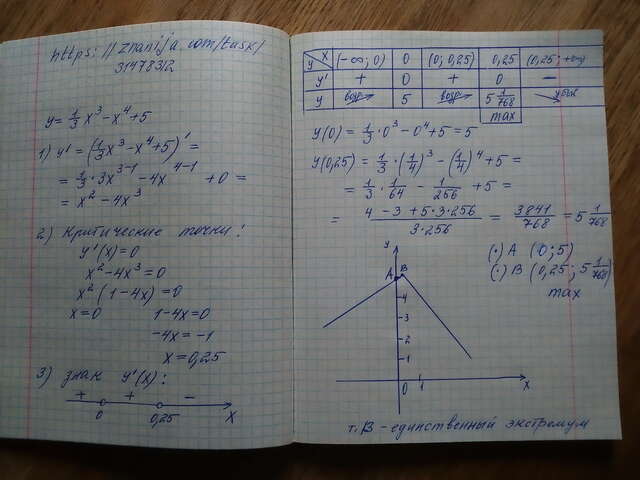 https://znanija.com/task/
31478312
y = 1/3 x³ - x⁴ + 5
1) y' = (1/3 x³ - x⁴ + 5)' =
= 1/3 · 3x³⁻¹ - 4x⁴⁻¹ + 0 =
= x² - 4x³
2) Критические точки:
y'(x) = 0
x² - 4x³ = 0
x² (1 - 4x) = 0
x = 0 1 - 4x = 0
-4x = -1
x = 0,25
3) знак y'(x):
+ + -
0 0,25 x
y x (-∞; 0) 0 (0; 0,25) 0,25 (0,25; +∞)
y' + 0 + 0 -
y возр 5 возр 5 1/768 убыв
max
y(0) = 1/3 · 0³ - 0⁴ + 5 = 5
y(0,25) = 1/3 · (1/4)³ - (1/4)⁴ + 5 =
= 1/3 · 1/64 - 1/256 + 5 =
= (4 - 3 + 5 · 3 · 256)/(3 · 256) = 3841/768 = 5 1/768
(·) A (0; 5)
(·) B (0,25; 5 1/768)
max
y
A B
4
3
2
1
0 1 x
т. B - единственный экстремум